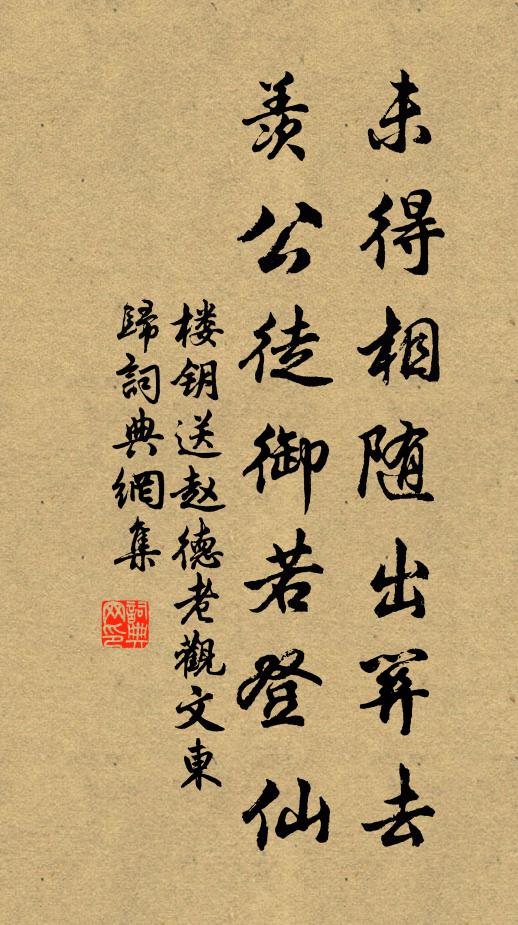 未得相随出關去
羨公徒御若登仙
楼钥送赵德老觀文東
歸詞典網集
詞典网印